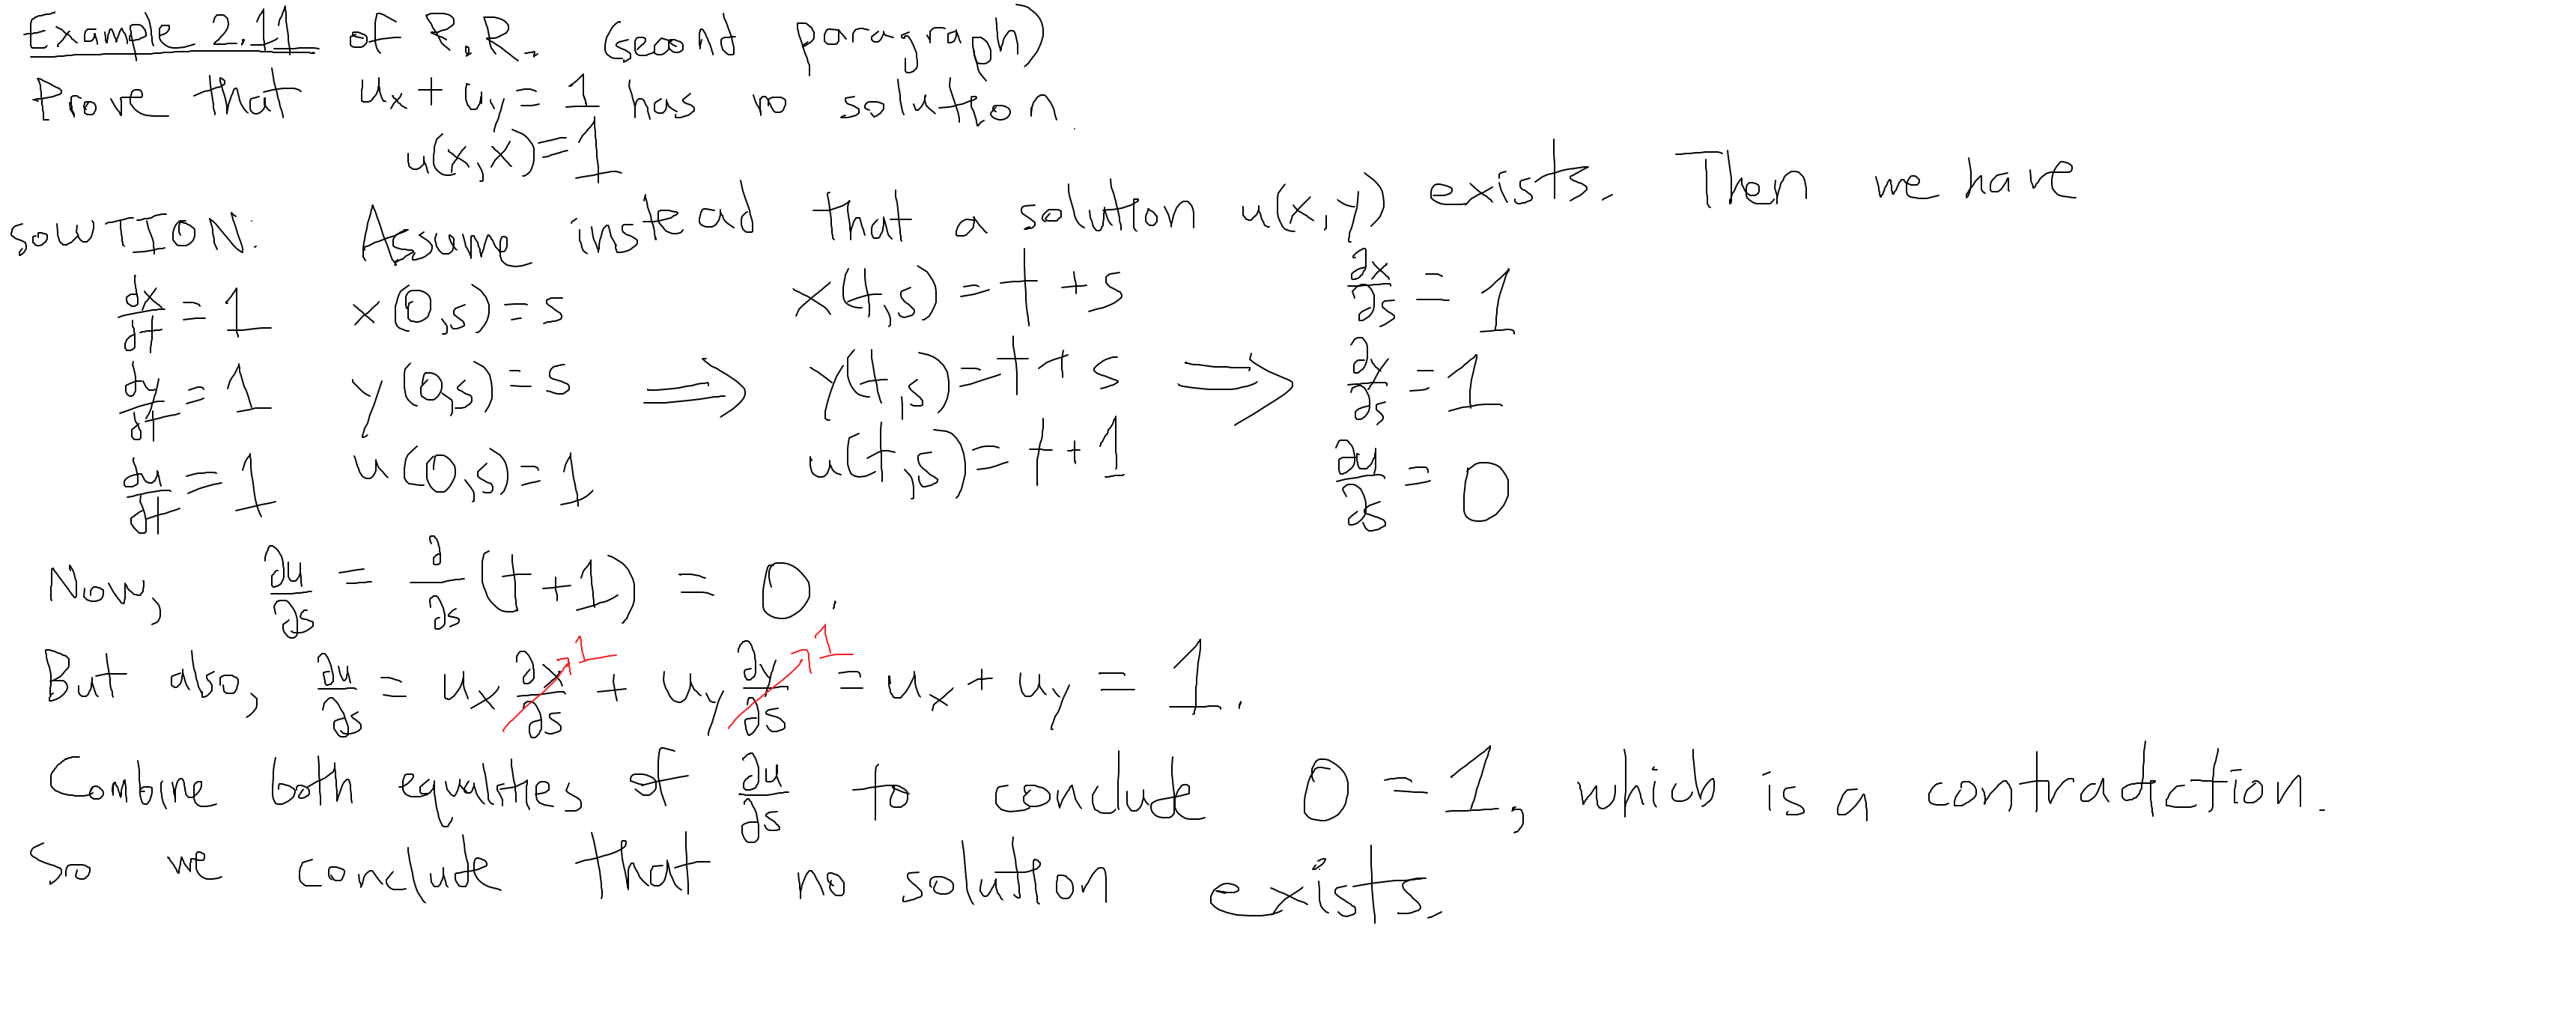 Example 2.11 of P.R. (second paragraph)
Prove that u_x + u_y = 1 has no solution.
u(x,x) = 1
SOLUTION: Assume instead that a solution u(x,y) exists. Then we have
dx/dt = 1 x(0,s) = s x(t,s) = t + s ∂x/∂s = 1
dy/dt = 1 y(0,s) = s ⟹ y(t,s) = t + s ⟹ ∂y/∂s = 1
du/dt = 1 u(0,s) = 1 u(t,s) = t + 1 ∂u/∂s = 0
Now, ∂u/∂s = ∂/∂s (t + 1) = 0.
But also, ∂u/∂s = u_x ∂x/∂s ↗1 + u_y ∂y/∂s ↗1 = u_x + u_y = 1.
Combine both equalities of ∂u/∂s to conclude 0 = 1, which is a contradiction.
So we conclude that no solution exists.